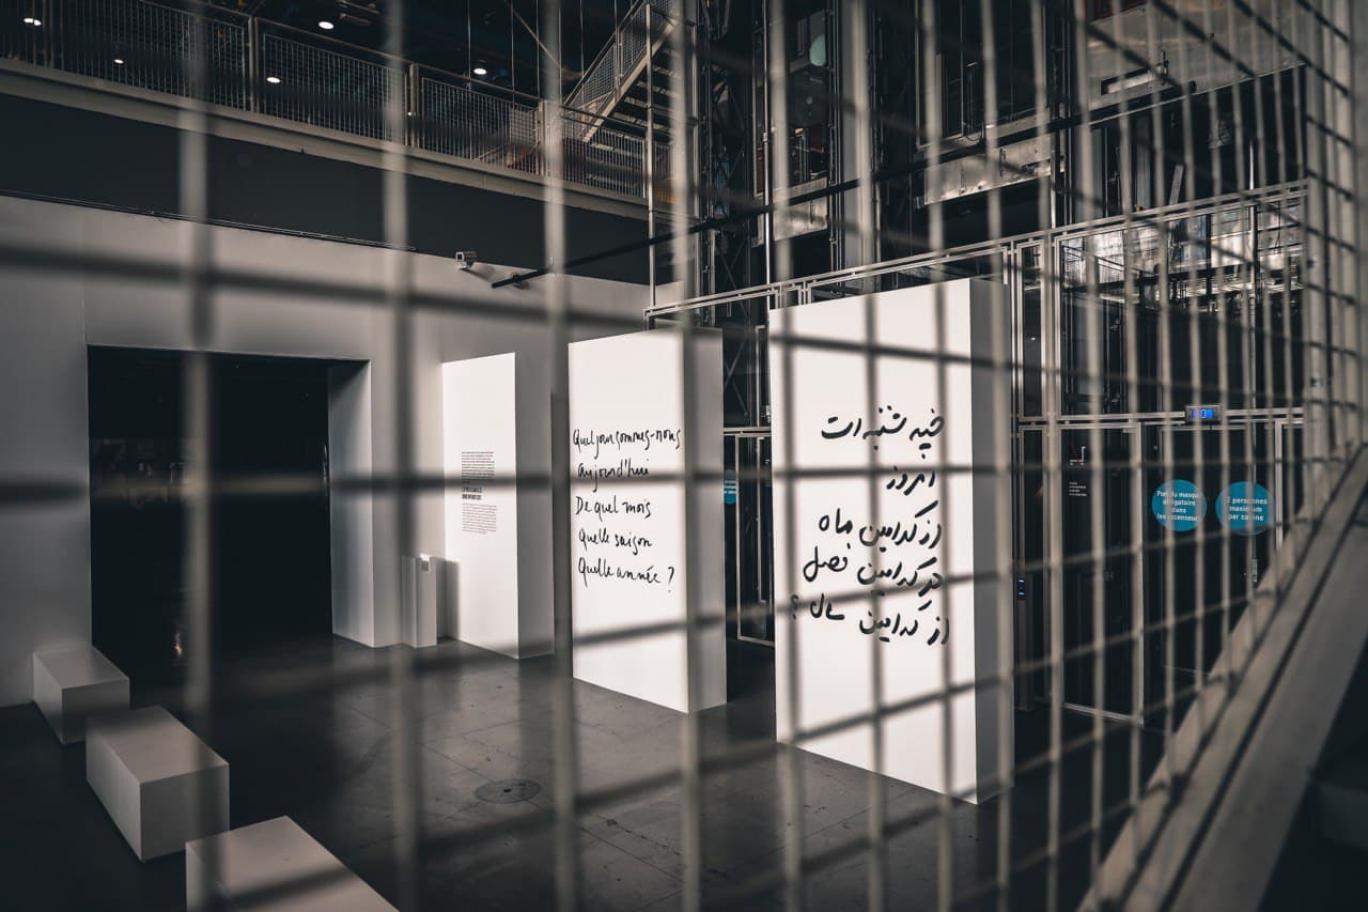 Quel jour sommes-nous
aujourd'hui
De quel mois
Quelle saison
Quelle année ?
چند شنبه است
امروز
از کدامین ماه
در کدامین فصل
از کدامین سال ؟
Port du masque
obligatoire
dans
les ascenseurs
2 personnes
maximum
par cabine